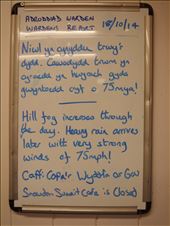 ADRODDIAD WARDEN
WARDENS REPORT 18/10/14
Niwl yn cynyddu trwy'r
dydd. Cawodydd trwm yn
cyrraedd yn hwyrach gyda
gwyntoedd cryf o 75mya!
Hill fog increases through
the day. Heavy rain arrives
later with very strong
winds of 75mph!
Caffi Copa'r Wyddfa ar Gau
Snowdon Summit Cafe is Closed